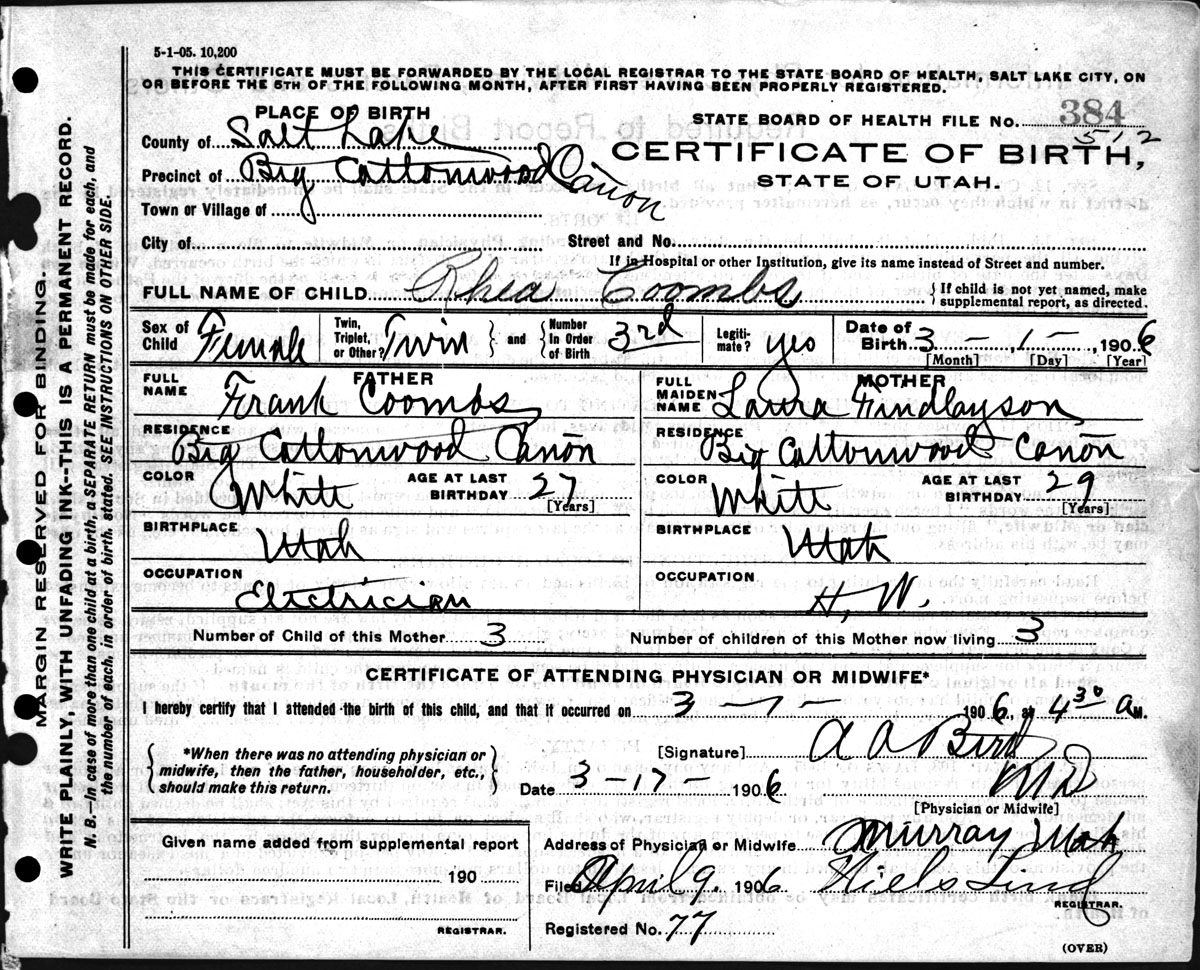 5-1-05. 10,200
THIS CERTIFICATE MUST BE FORWARDED BY THE LOCAL REGISTRAR TO THE STATE BOARD OF HEALTH, SALT LAKE CITY, ON
OR BEFORE THE 5TH OF THE FOLLOWING MONTH, AFTER FIRST HAVING BEEN PROPERLY REGISTERED.
PLACE OF BIRTH
STATE BOARD OF HEALTH FILE NO. 384
512
County of Salt Lake
CERTIFICATE OF BIRTH,
Precinct of Big Cottonwood Cañon
STATE OF UTAH.
Town or Village of
City of Street and No.
If in Hospital or other Institution, give its name instead of Street and number.
FULL NAME OF CHILD Rhea Coombs { If child is not yet named, make
supplemental report, as directed.
Sex of Child Female Twin, Triplet, or Other? Twin } and { Number In Order of Birth 3rd Legiti-mate? yes Date of Birth 3 - 1 - 1906
[Month] [Day] [Year]
FATHER MOTHER
FULL NAME Frank Coombs FULL MAIDEN NAME Laura Findlayson
RESIDENCE Big Cottonwood Cañon RESIDENCE Big Cottonwood Cañon
COLOR White AGE AT LAST BIRTHDAY 27 [Years] COLOR White AGE AT LAST BIRTHDAY 29 [Years]
BIRTHPLACE Utah BIRTHPLACE Utah
OCCUPATION Electrician OCCUPATION H. W.
Number of Child of this Mother 3 Number of children of this Mother now living 3
CERTIFICATE OF ATTENDING PHYSICIAN OR MIDWIFE*
I hereby certify that I attended the birth of this child, and that it occurred on 3 - 1 - 1906, at 4 30 a M.
*When there was no attending physician or
midwife, then the father, householder, etc.,
should make this return.
[Signature] A A Bird
MD
Date 3-17- 1906
[Physician or Midwife]
Given name added from supplemental report
190
REGISTRAR.
Address of Physician or Midwife Murray Utah
Filed April 9. 1906 Niels Lind
REGISTRAR.
Registered No. 77
(OVER)
MARGIN RESERVED FOR BINDING.
WRITE PLAINLY, WITH UNFADING INK--THIS IS A PERMANENT RECORD.
N. B.--In case of more than one child at a birth, a SEPARATE RETURN must be made for each, and
the number of each, in order of birth, stated. SEE INSTRUCTIONS ON OTHER SIDE.